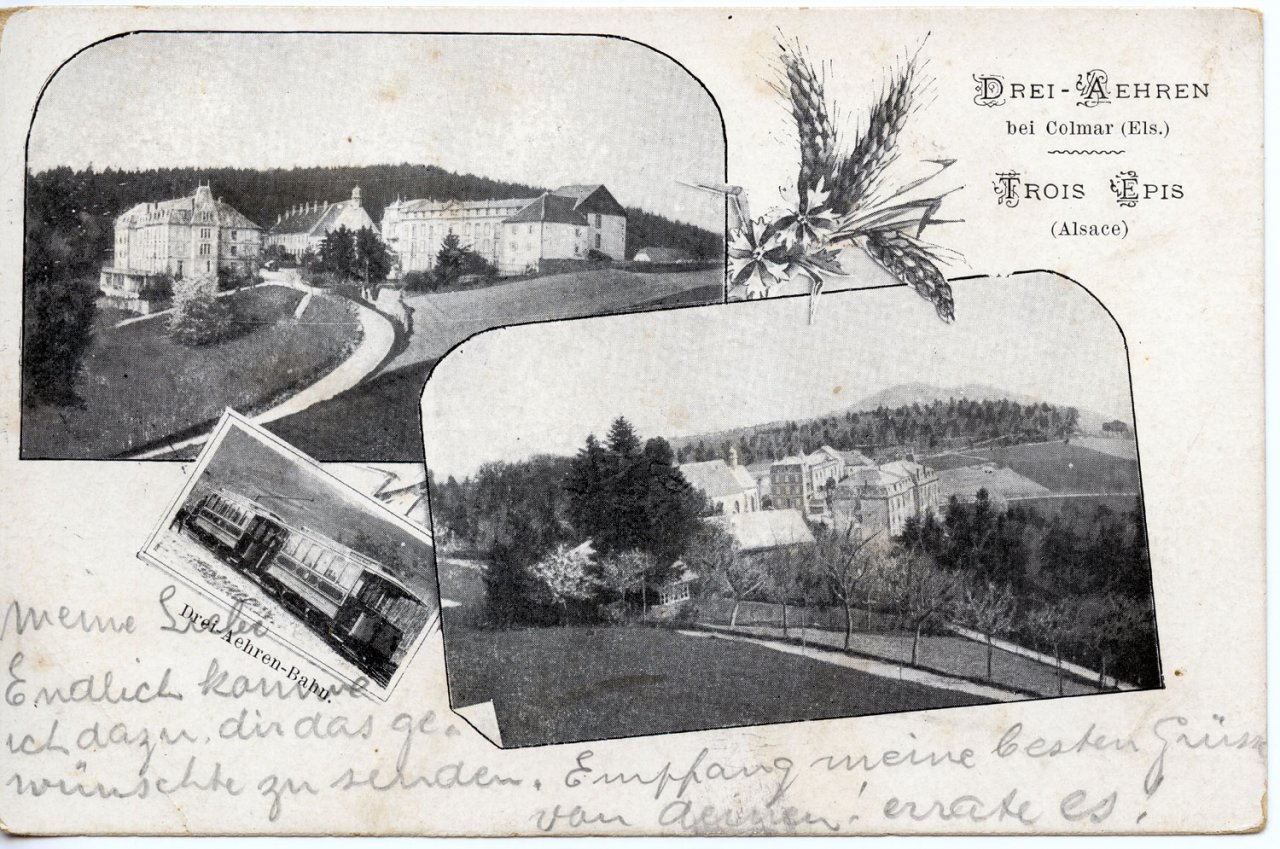 DREI-AEHREN
bei Colmar (Els.)
TROIS EPIS
(Alsace)
Drei-Aehren-Bahn.
meine Liebe
Endlich komme
ich dazu, dir das ge-
wünschte zu senden. Empfang meine besten Grüsse
von deinen! errate es!